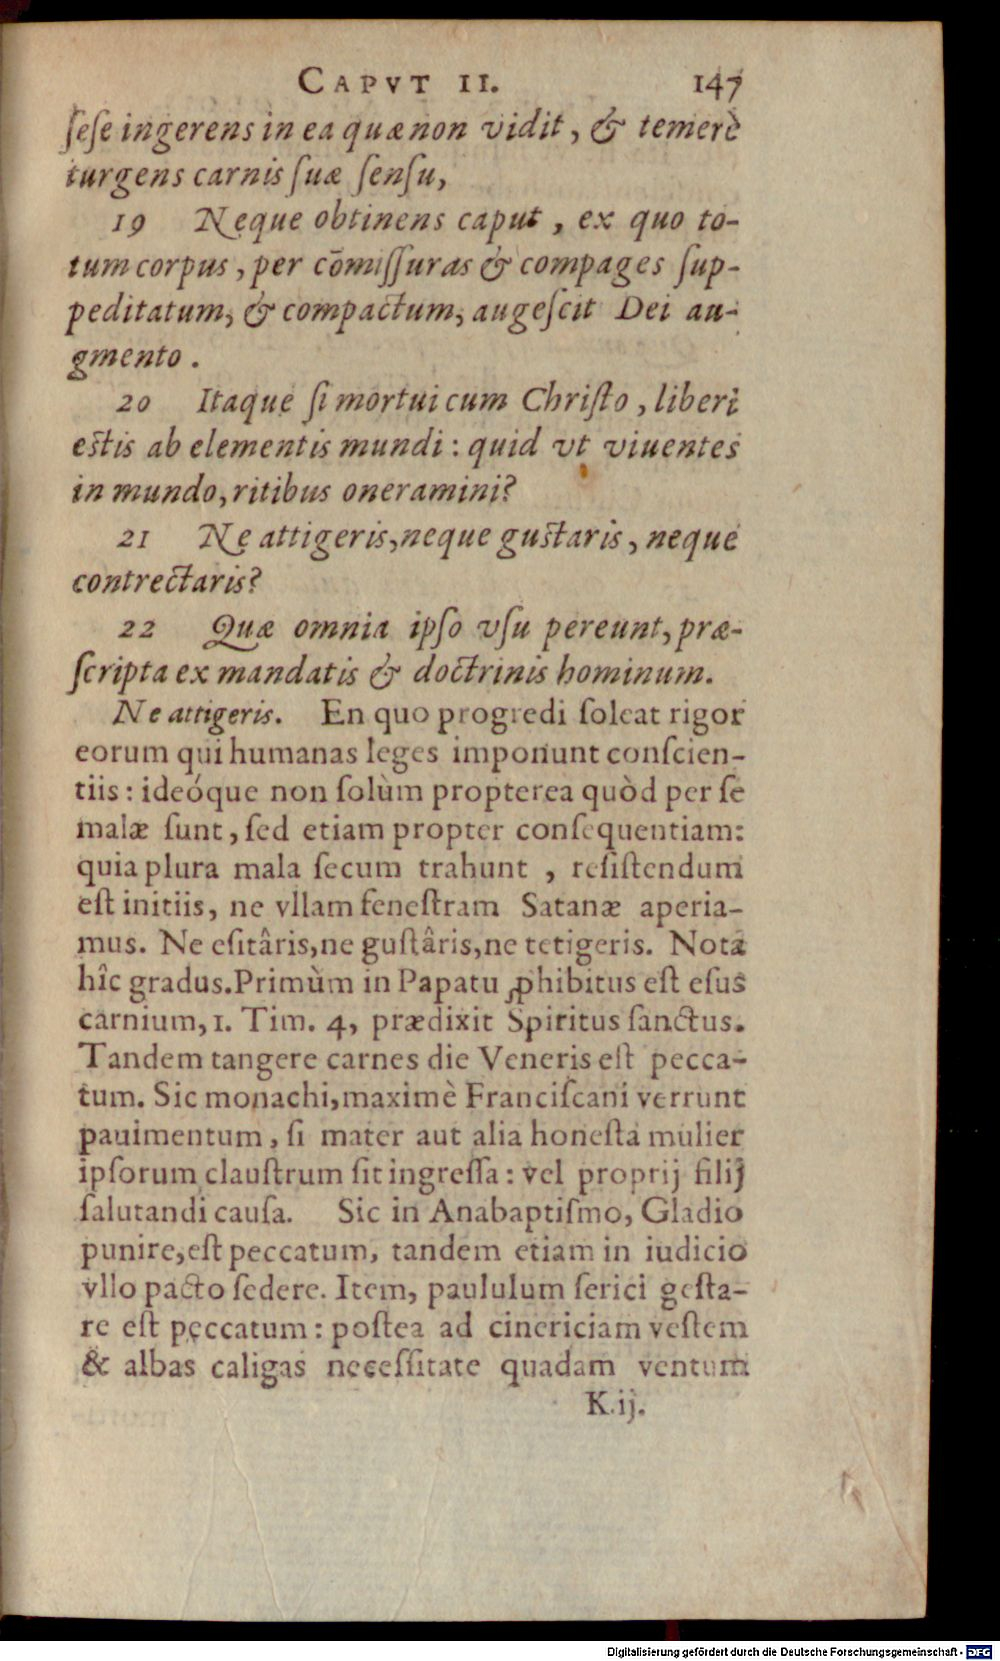 CAPVT II. 147
ſeſe ingerens in ea quæ non vidit, & temerè
turgens carnis ſuæ ſenſu,
19 Neque obtinens caput, ex quo to-
tum corpus, per cōmiſſuras & compages ſup-
peditatum, & compactum, augeſcit Dei au-
gmento.
20 Itaque ſi mortui cum Chriſto, liberi
eſtis ab elementis mundi: quid vt viuentes
in mundo, ritibus oneramini?
21 Ne attigeris, neque guſtaris, neque
contrectaris?
22 Quæ omnia ipſo vſu pereunt, præ-
ſcripta ex mandatis & doctrinis hominum.
Ne attigeris. En quo progredi ſoleat rigor
eorum qui humanas leges imponunt conſcien-
tiis: ideóque non ſolùm propterea quòd per ſe
malæ ſunt, ſed etiam propter conſequentiam:
quia plura mala ſecum trahunt, reſiſtendum
eſt initiis, ne vllam feneſtram Satanæ aperia-
mus. Ne eſitâris, ne guſtâris, ne tetigeris. Nota
hîc gradus. Primùm in Papatu ꝓhibitus eſt eſus
carnium, 1. Tim. 4, prædixit Spiritus ſanctus.
Tandem tangere carnes die Veneris eſt pecca-
tum. Sic monachi, maximè Franciſcani verrunt
pauimentum, ſi mater aut alia honeſta mulier
ipſorum clauſtrum ſit ingreſſa: vel proprij filij
ſalutandi cauſa. Sic in Anabaptiſmo, Gladio
punire, eſt peccatum, tandem etiam in iudicio
vllo pacto ſedere. Item, paululum ſerici geſta-
re eſt peccatum: poſtea ad cinericiam veſtem
& albas caligas neceſſitate quadam ventum
K.ij.
Digitalisierung gefördert durch die Deutsche Forschungsgemeinschaft - DFG